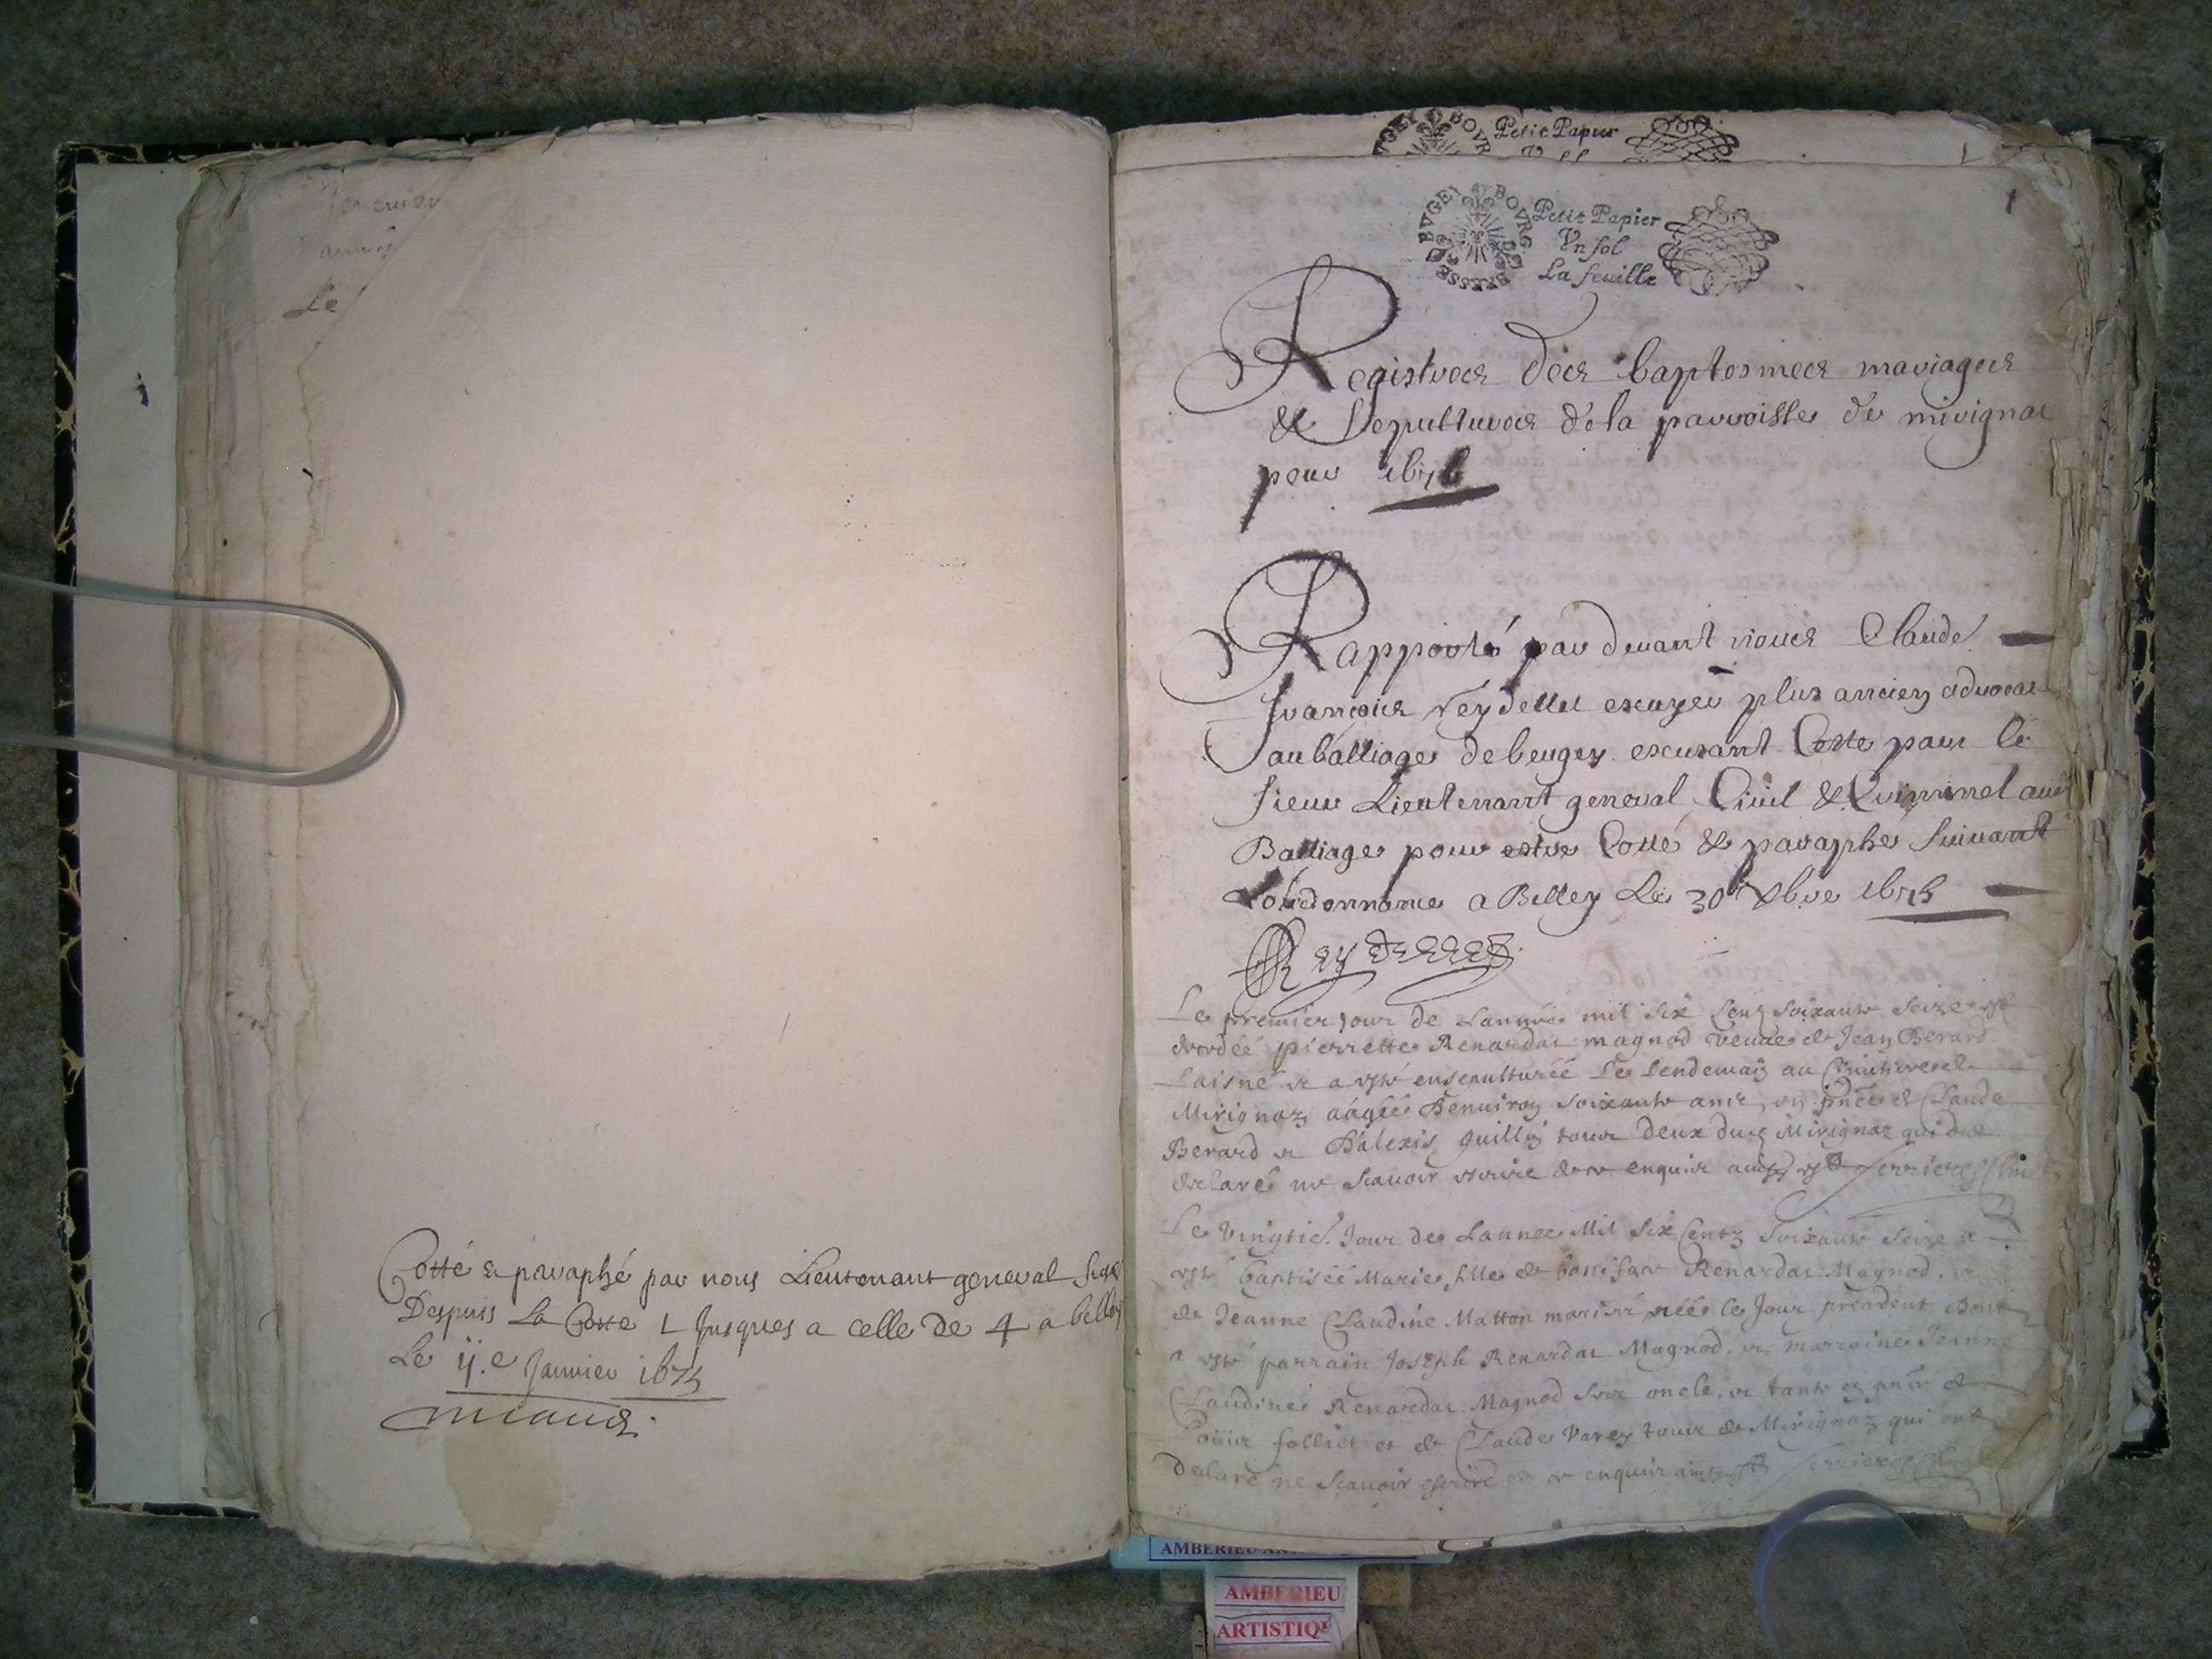 Le
Cotté & paraphé par nous Lieutenant general
Despuis La Cotte 1 Jusques a celle de 4 a belley
Le ij.e Janvier 1675
Petit Papier
BVGEY BOVRG BRESSE
Petit Papier
Vn sol
La feuille
1
Registres des baptesmes mariages
& Sepultures de la parroisse de mirignat
pour 1676
Rapporté par devant nous Claude
françois reydellet escuyer plus ancien advocat
au balliage de beugey excusant Cotte pour le
sieur Lieutenant general Civil & Criminel audit
Balliage pour estre Cotté & paraphé suivant
Lordonnance a Belley Le 30 Xbre 1675
Reydellet
Le premier jour de Lannée mil six Cent soixante seize est
decedéé pierrette Renardat magnod veuve de Jean Berard
Laisné et a esté ensepulturéé Le Lendemain au Cimitiere de
Mirignaz aàgéé Denuiron soixante ans, en pnce de Claude
Berard et Dalexis Guillin tous deux dud Mirignaz qui ont
declaré ne scauoir escrire de ce enquis ainsy est
Le vingtie. Jour de Lannee Mil six Centz soixante seize a
esté baptiséé Marie fille de boniface Renardat Magnod, et
de Jeanne Claudine Matton mariés néé le Jour precedent dont
a esté parrain Joseph Renardat Magnod, et marraine Jeanne
Claudine Renardat Magnod ses oncle, et tante en pnce de
Louis folliet et de Claude Varey tous de Mirignaz qui ont
Declaré ne scauoir escrire de ce enquis ainsy est
AMBERIEU
AMBERIEU
ARTISTIQ